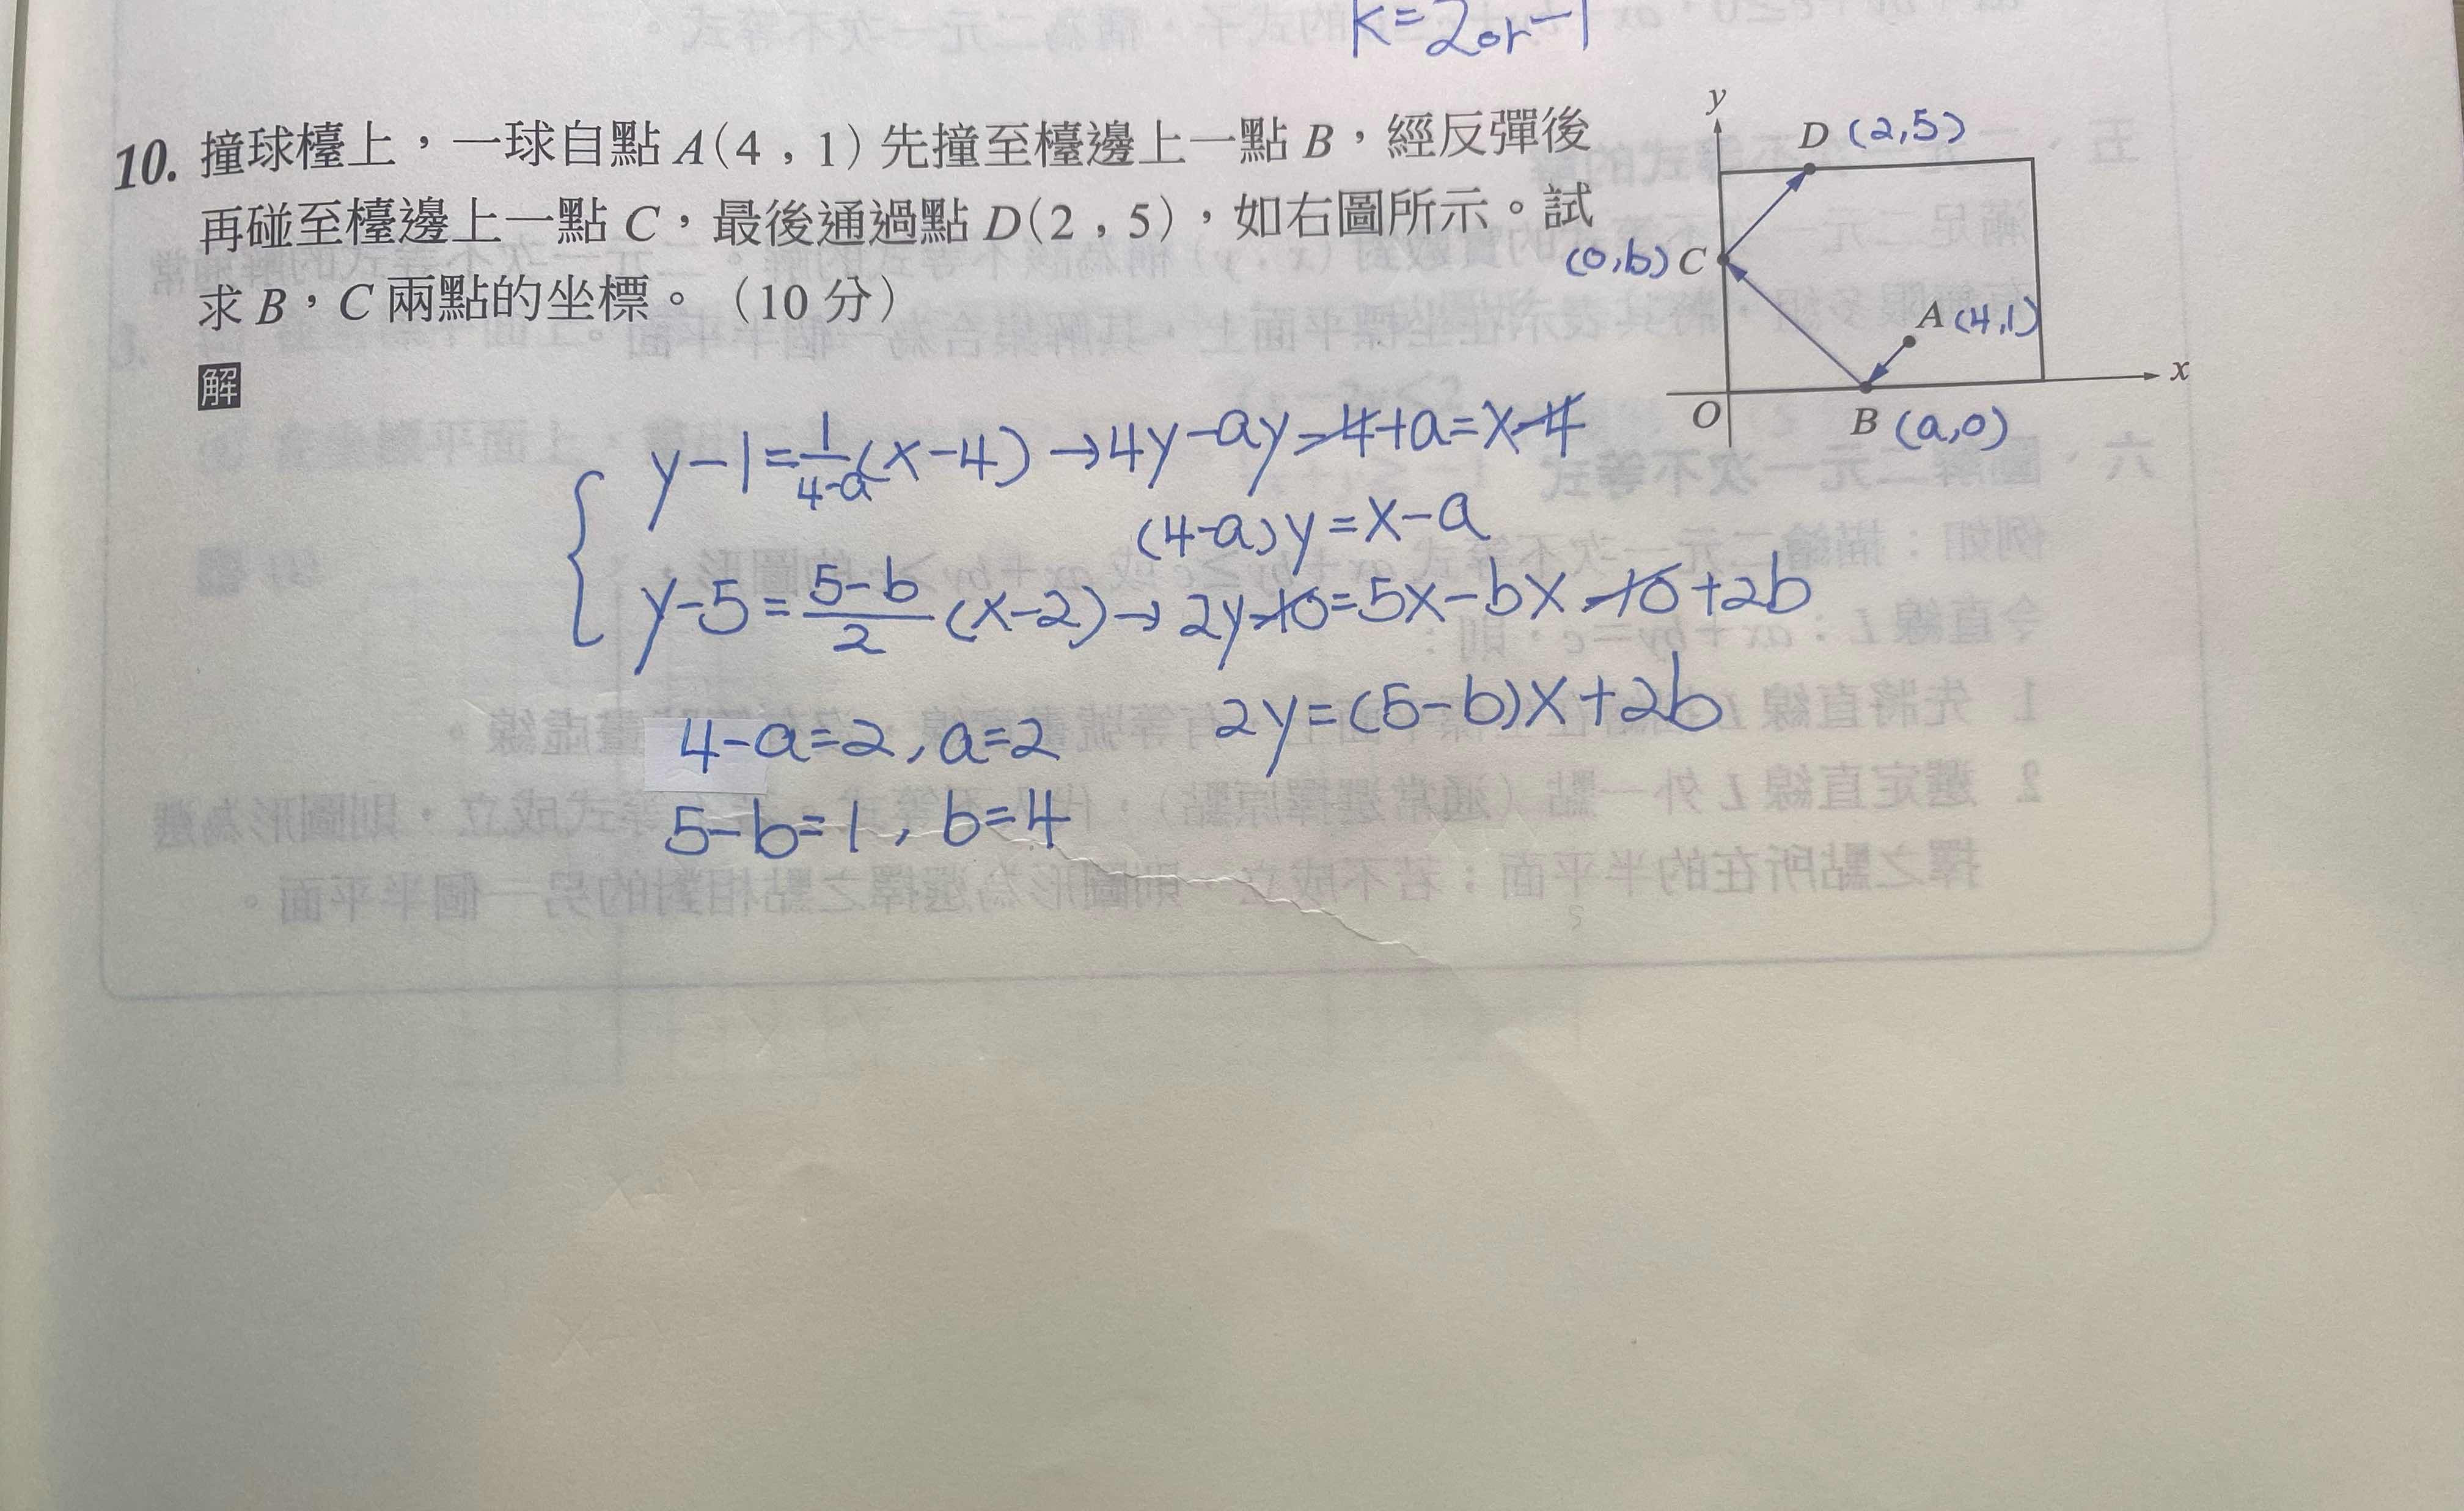 k=2or-1
10. 撞球檯上，一球自點 A(4，1) 先撞至檯邊上一點 B，經反彈後
再碰至檯邊上一點 C，最後通過點 D(2，5)，如右圖所示。試
求 B，C 兩點的坐標。（10 分）
y
D (2,5)
(0,b) C
A (4,1)
x
O
B (a,0)
解
y-1=1/(4-a)(x-4)→4y-ay-4+a=x-4
(4-a)y=x-a
y-5=(5-b)/2(x-2)→2y-10=5x-bx-10+2b
2y=(5-b)x+2b
4-a=2,a=2
5-b=1,b=4